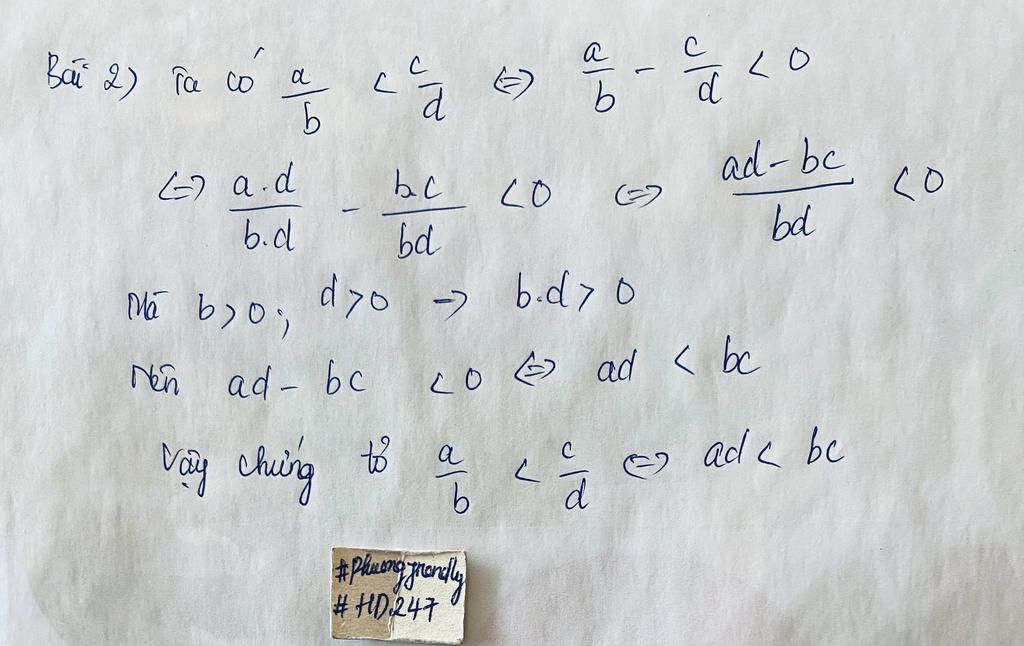 Bài 2) Ta có a/b < c/d <=> a/b - c/d < 0
<=> a.d/b.d - b.c/bd < 0 <=> ad - bc/bd < 0
Mà b > 0; d > 0 -> b.d > 0
Nên ad - bc < 0 <=> ad < bc
Vậy chứng tỏ a/b < c/d <=> ad < bc
#HD247